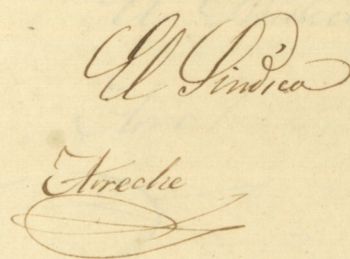 El Síndico
Arreche